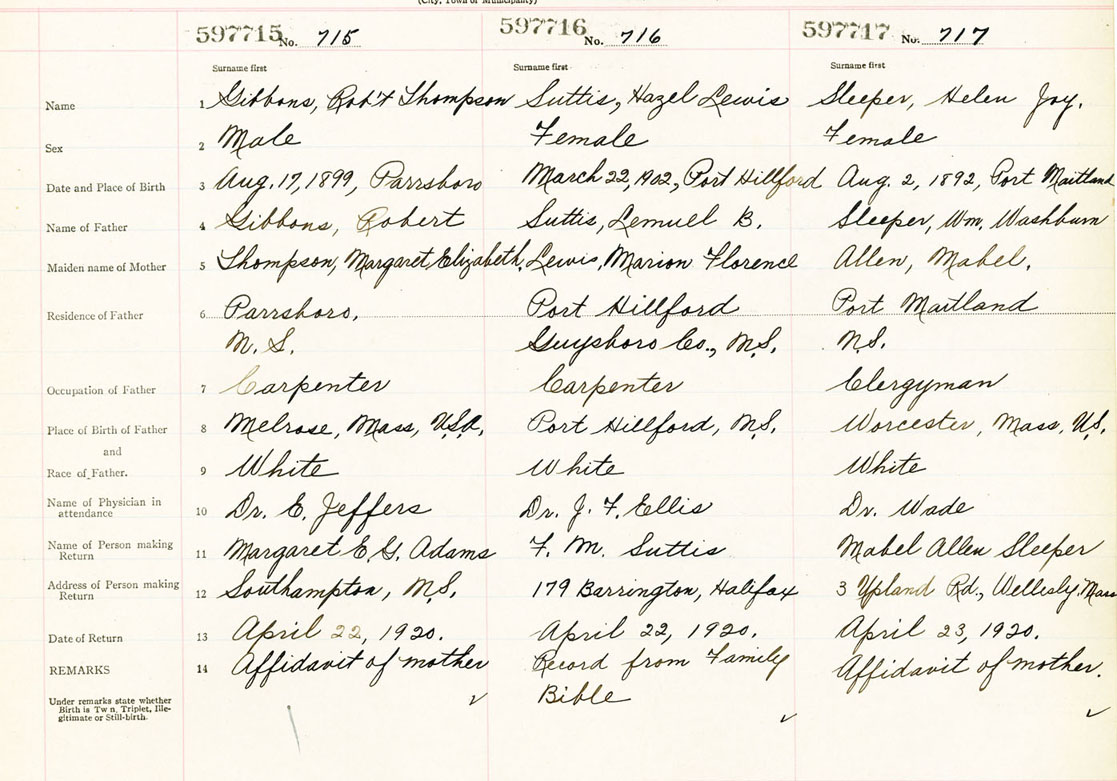 (City, Town or Municipality)
597715 No. 715 597716 No. 716 597717 No. 717
Surname first Surname first Surname first
Name 1 Gibbons, Rob't Thompson Suttis, Hazel Lewis Sleeper, Helen Joy.
Sex 2 Male Female Female
Date and Place of Birth 3 Aug. 17, 1899, Parrsboro March 22, 1902, Port Hillford Aug. 2, 1892, Port Maitland
Name of Father 4 Gibbons, Robert Suttis, Lemuell B. Sleeper, Wm, Washburn
Maiden name of Mother 5 Thompson, Margaret Elizabeth. Lewis, Marion Florence Allen, Mabel.
Residence of Father 6 Parrsboro, Port Hillford Port Maitland
N.S. Guysboro Co., N.S. N.S.
Occupation of Father 7 Carpenter Carpenter Clergyman
Place of Birth of Father 8 Melrose, Mass, U.S.A. Port Hillford, N.S. Worcester, Mass, U.S.
and
Race of Father. 9 White White White
Name of Physician in attendance 10 Dr. E. Jeffers Dr. J. F. Ellis Dr. Wade
Name of Person making Return 11 Margaret E. G. Adams F. M. Suttis Mabel Allen Sleeper
Address of Person making Return 12 Southampton, N.S. 179 Barrington, Halifax 3 Upland Rd., Wellesly, Mass
Date of Return 13 April 22, 1920. April 22, 1920. April 23, 1920.
REMARKS 14 Affidavit of mother Record from Family Affidavit of mother.
Bible
Under remarks state whether
Birth is Tw n, Triplet, Ille-
gitimate or Still-birth.